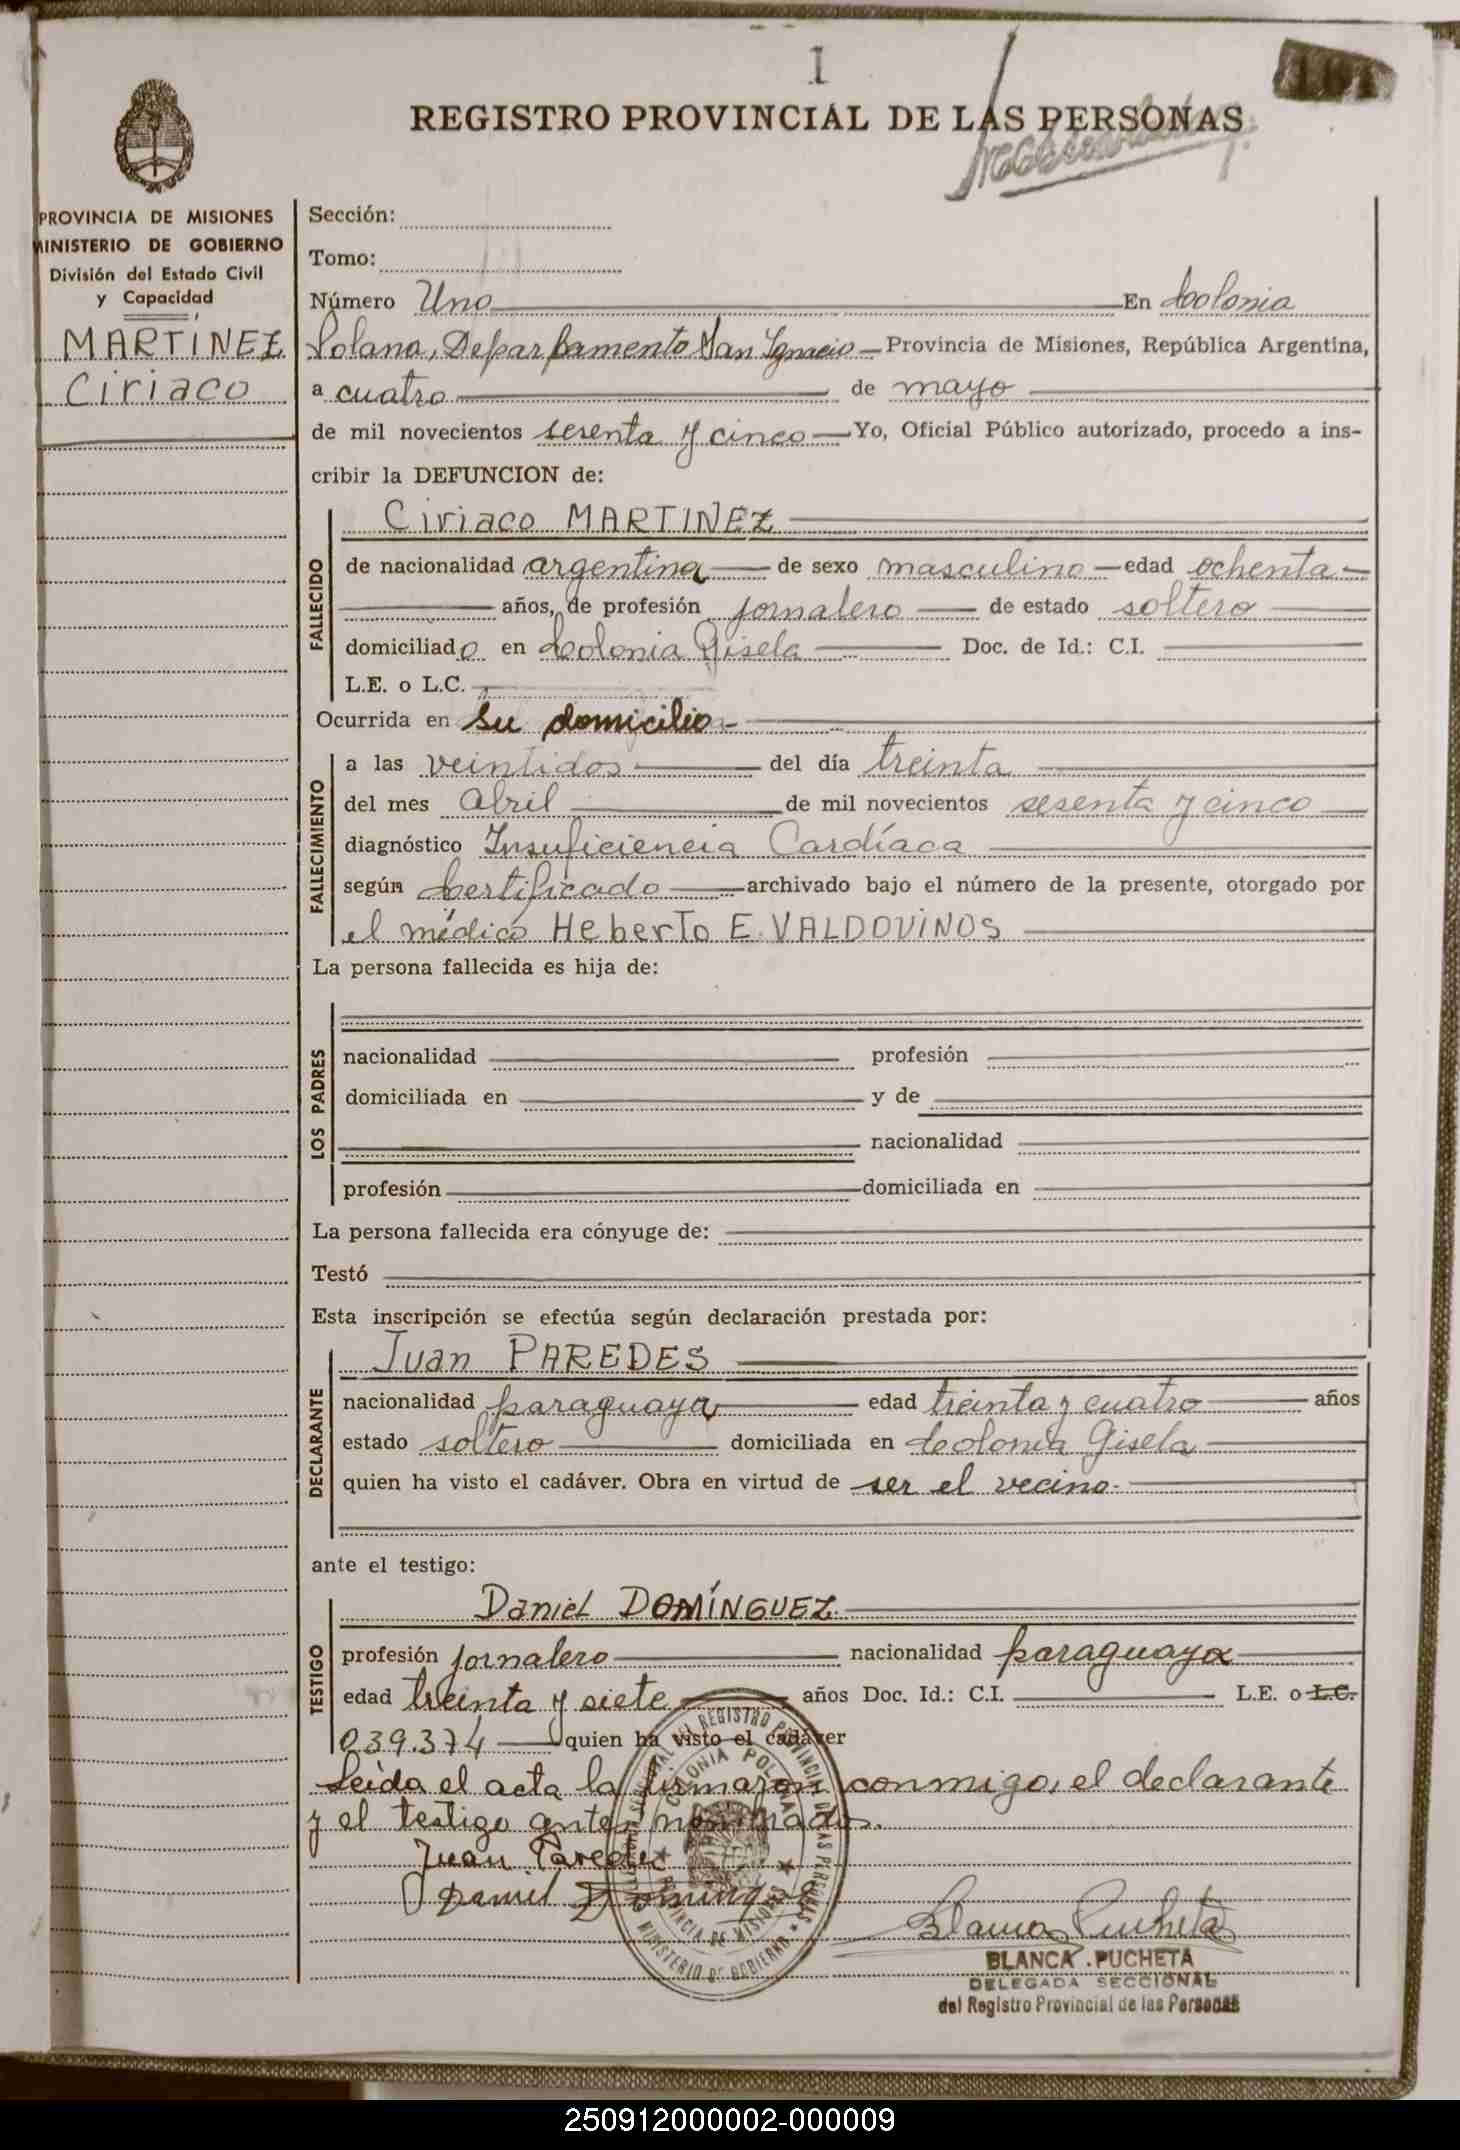 1
101
REGISTRO PROVINCIAL DE LAS PERSONAS
PROVINCIA DE MISIONES
MINISTERIO DE GOBIERNO
División del Estado Civil
y Capacidad
MARTÍNEZ
Ciriaco
Sección:
Tomo:
Número Uno En Colonia
Polana, Departamento San Ignacio Provincia de Misiones, República Argentina,
a cuatro de mayo
de mil novecientos sesenta y cinco Yo, Oficial Público autorizado, procedo a ins-
cribir la DEFUNCION de:
FALLECIDO
Ciriaco MARTINEZ
de nacionalidad argentina de sexo masculino edad ochenta
años, de profesión jornalero de estado soltero
domiciliado en Colonia Gisela Doc. de Id.: C.I.
L.E. o L.C.
Ocurrida en su domicilio
FALLECIMIENTO
a las veintidos del día treinta
del mes abril de mil novecientos sesenta y cinco
diagnóstico Insuficiencia Cardíaca
según Certificado archivado bajo el número de la presente, otorgado por
el médico Heberto E. VALDOVINOS
La persona fallecida es hija de:
LOS PADRES
nacionalidad profesión
domiciliada en y de
nacionalidad
profesión domiciliada en
La persona fallecida era cónyuge de:
Testó
Esta inscripción se efectúa según declaración prestada por:
DECLARANTE
Juan PAREDES
nacionalidad paraguaya edad treinta y cuatro años
estado soltero domiciliada en Colonia Gisela
quien ha visto el cadáver. Obra en virtud de ser el vecino.
ante el testigo:
TESTIGO
Daniel DOMÍNGUEZ
profesión jornalero nacionalidad paraguaya
edad treinta y siete años Doc. Id.: C.I. L.E. o L.C.
039.374 quien ha visto el cadáver
Leída el acta la firmaron conmigo, el declarante
y el testigo antes nombrados.
Juan Paredes
Daniel Doming
COLONIA POLANA
PROVINCIA DE MISIONES
MINISTERIO DE GOBIERNO
Blanca Pucheta
BLANCA PUCHETA
DELEGADA SECCIONAL
del Registro Provincial de las Personas
250912000002-000009